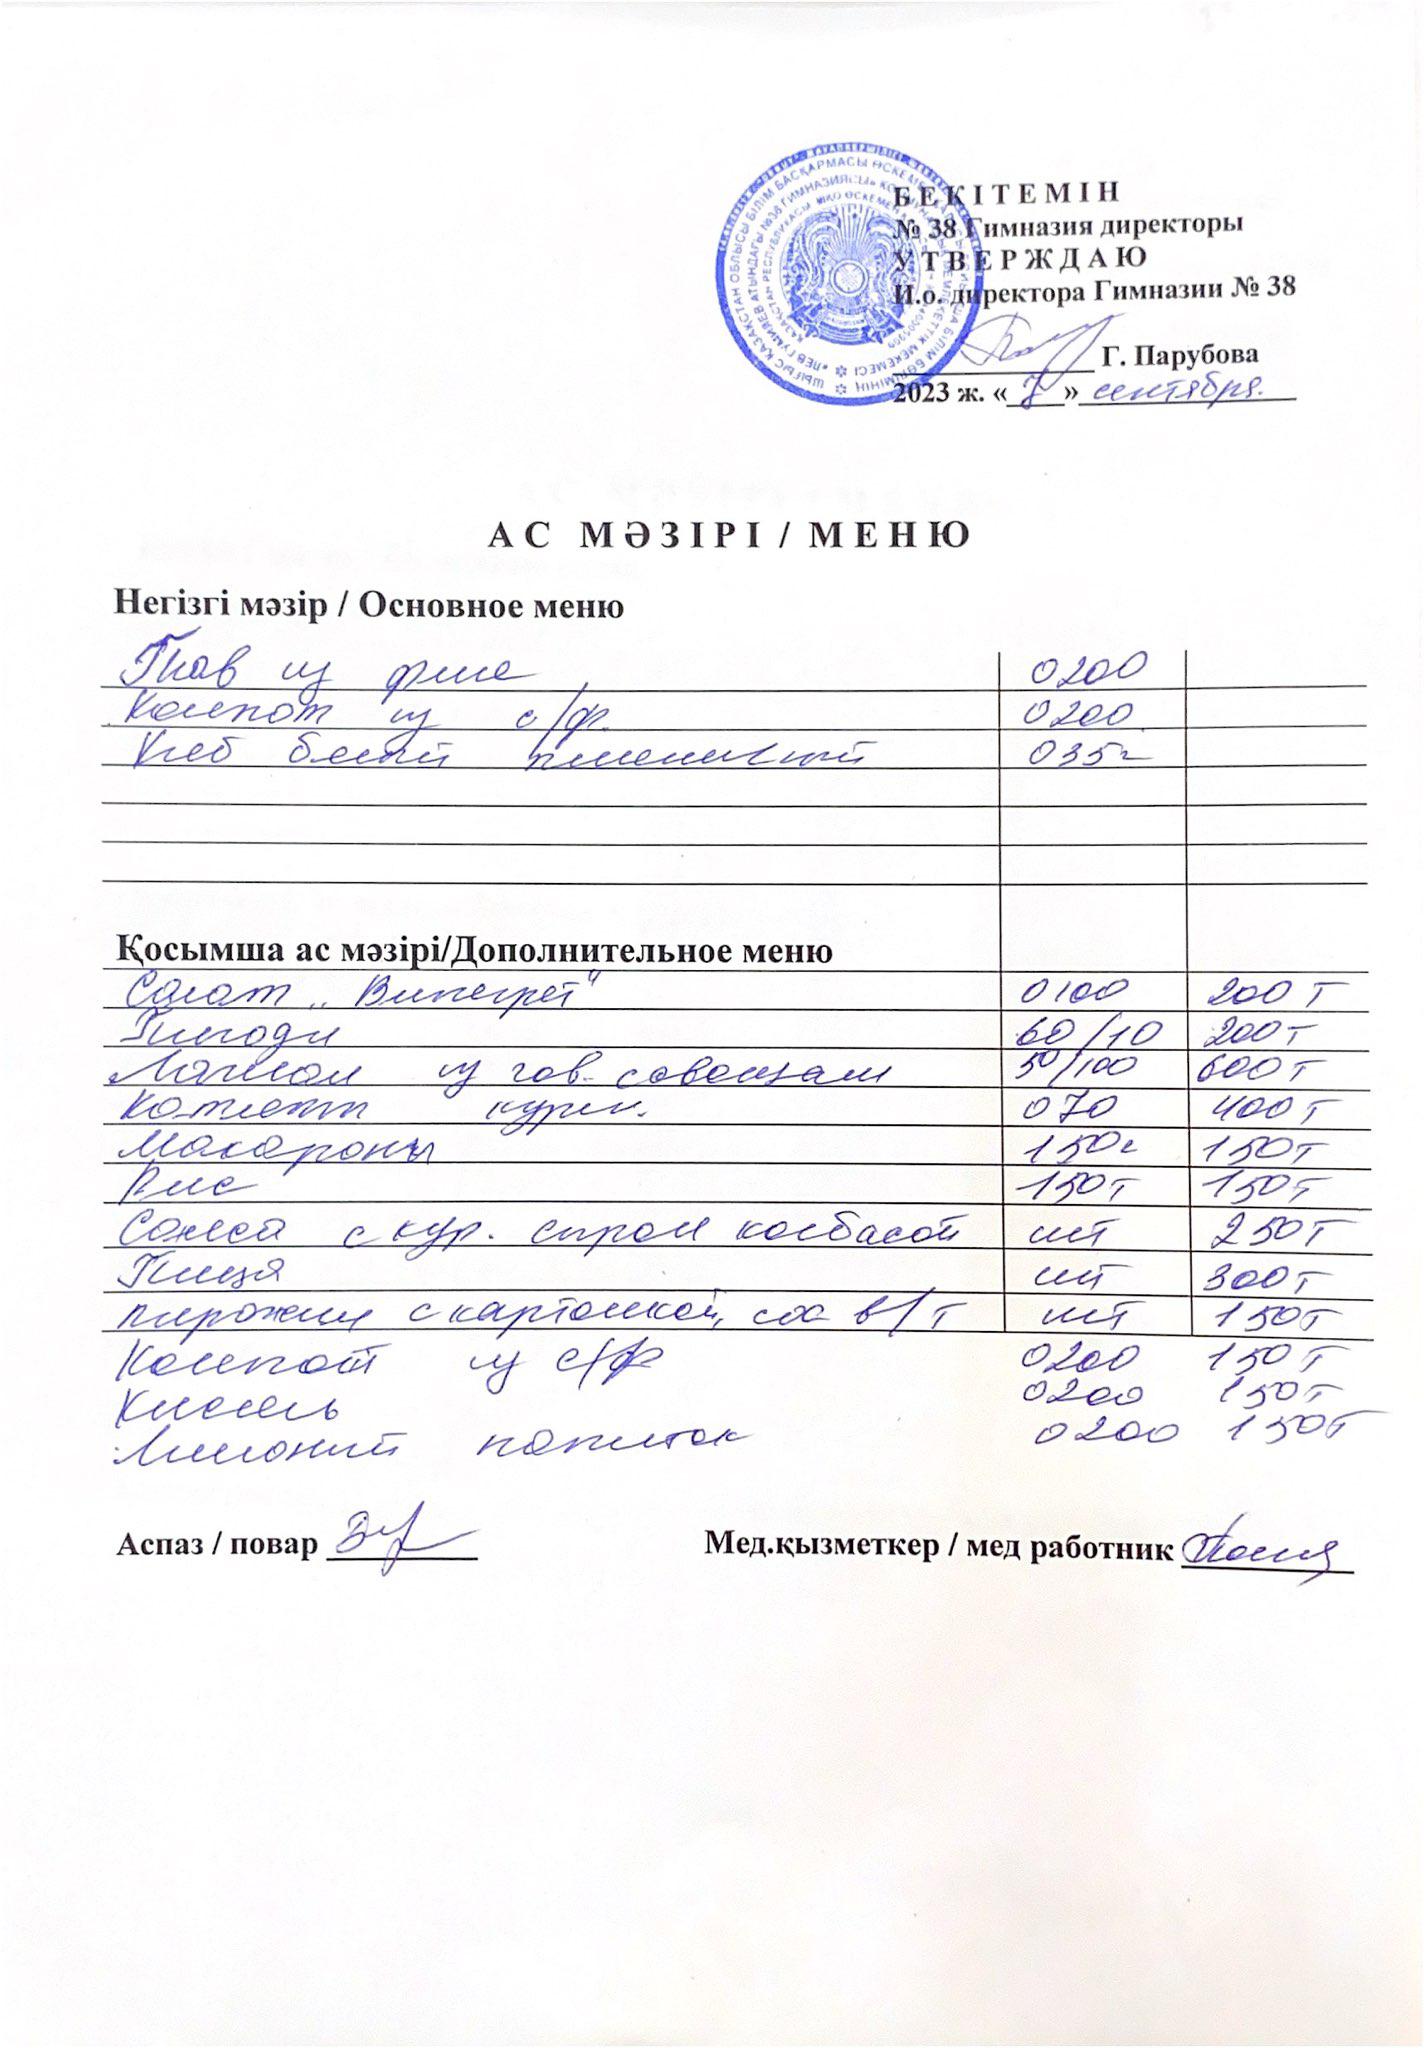 БЕКІТЕМІН
№ 38 Гимназия директоры
УТВЕРЖДАЮ
И.о. директора Гимназии № 38
Г. Парубова
2023 ж. «7» сентября.
АС МӘЗІРІ / МЕНЮ
Негізгі мәзір / Основное меню
Плов из филе 0200
Компот из с/ф. 0200
Хлеб белый пшеничный 035г
Қосымша ас мәзірі/Дополнительное меню
Салат „Винегрет" 0100 200 т
60/10 200т
из гов. с овощами 50/100 600 т
Котлета курин. 070 400т
Макароны 150г 150т
Рис 150т 150т
с кур. сыром колбасой шт 250т
Пицца шт 300т
пирожки с картошкой, сос в/т шт 150т
Компот из с/ф 0200 150т
Кисель 0200 150т
Лимонный напиток 0200 150т
Аспаз / повар Мед.қызметкер / мед работник